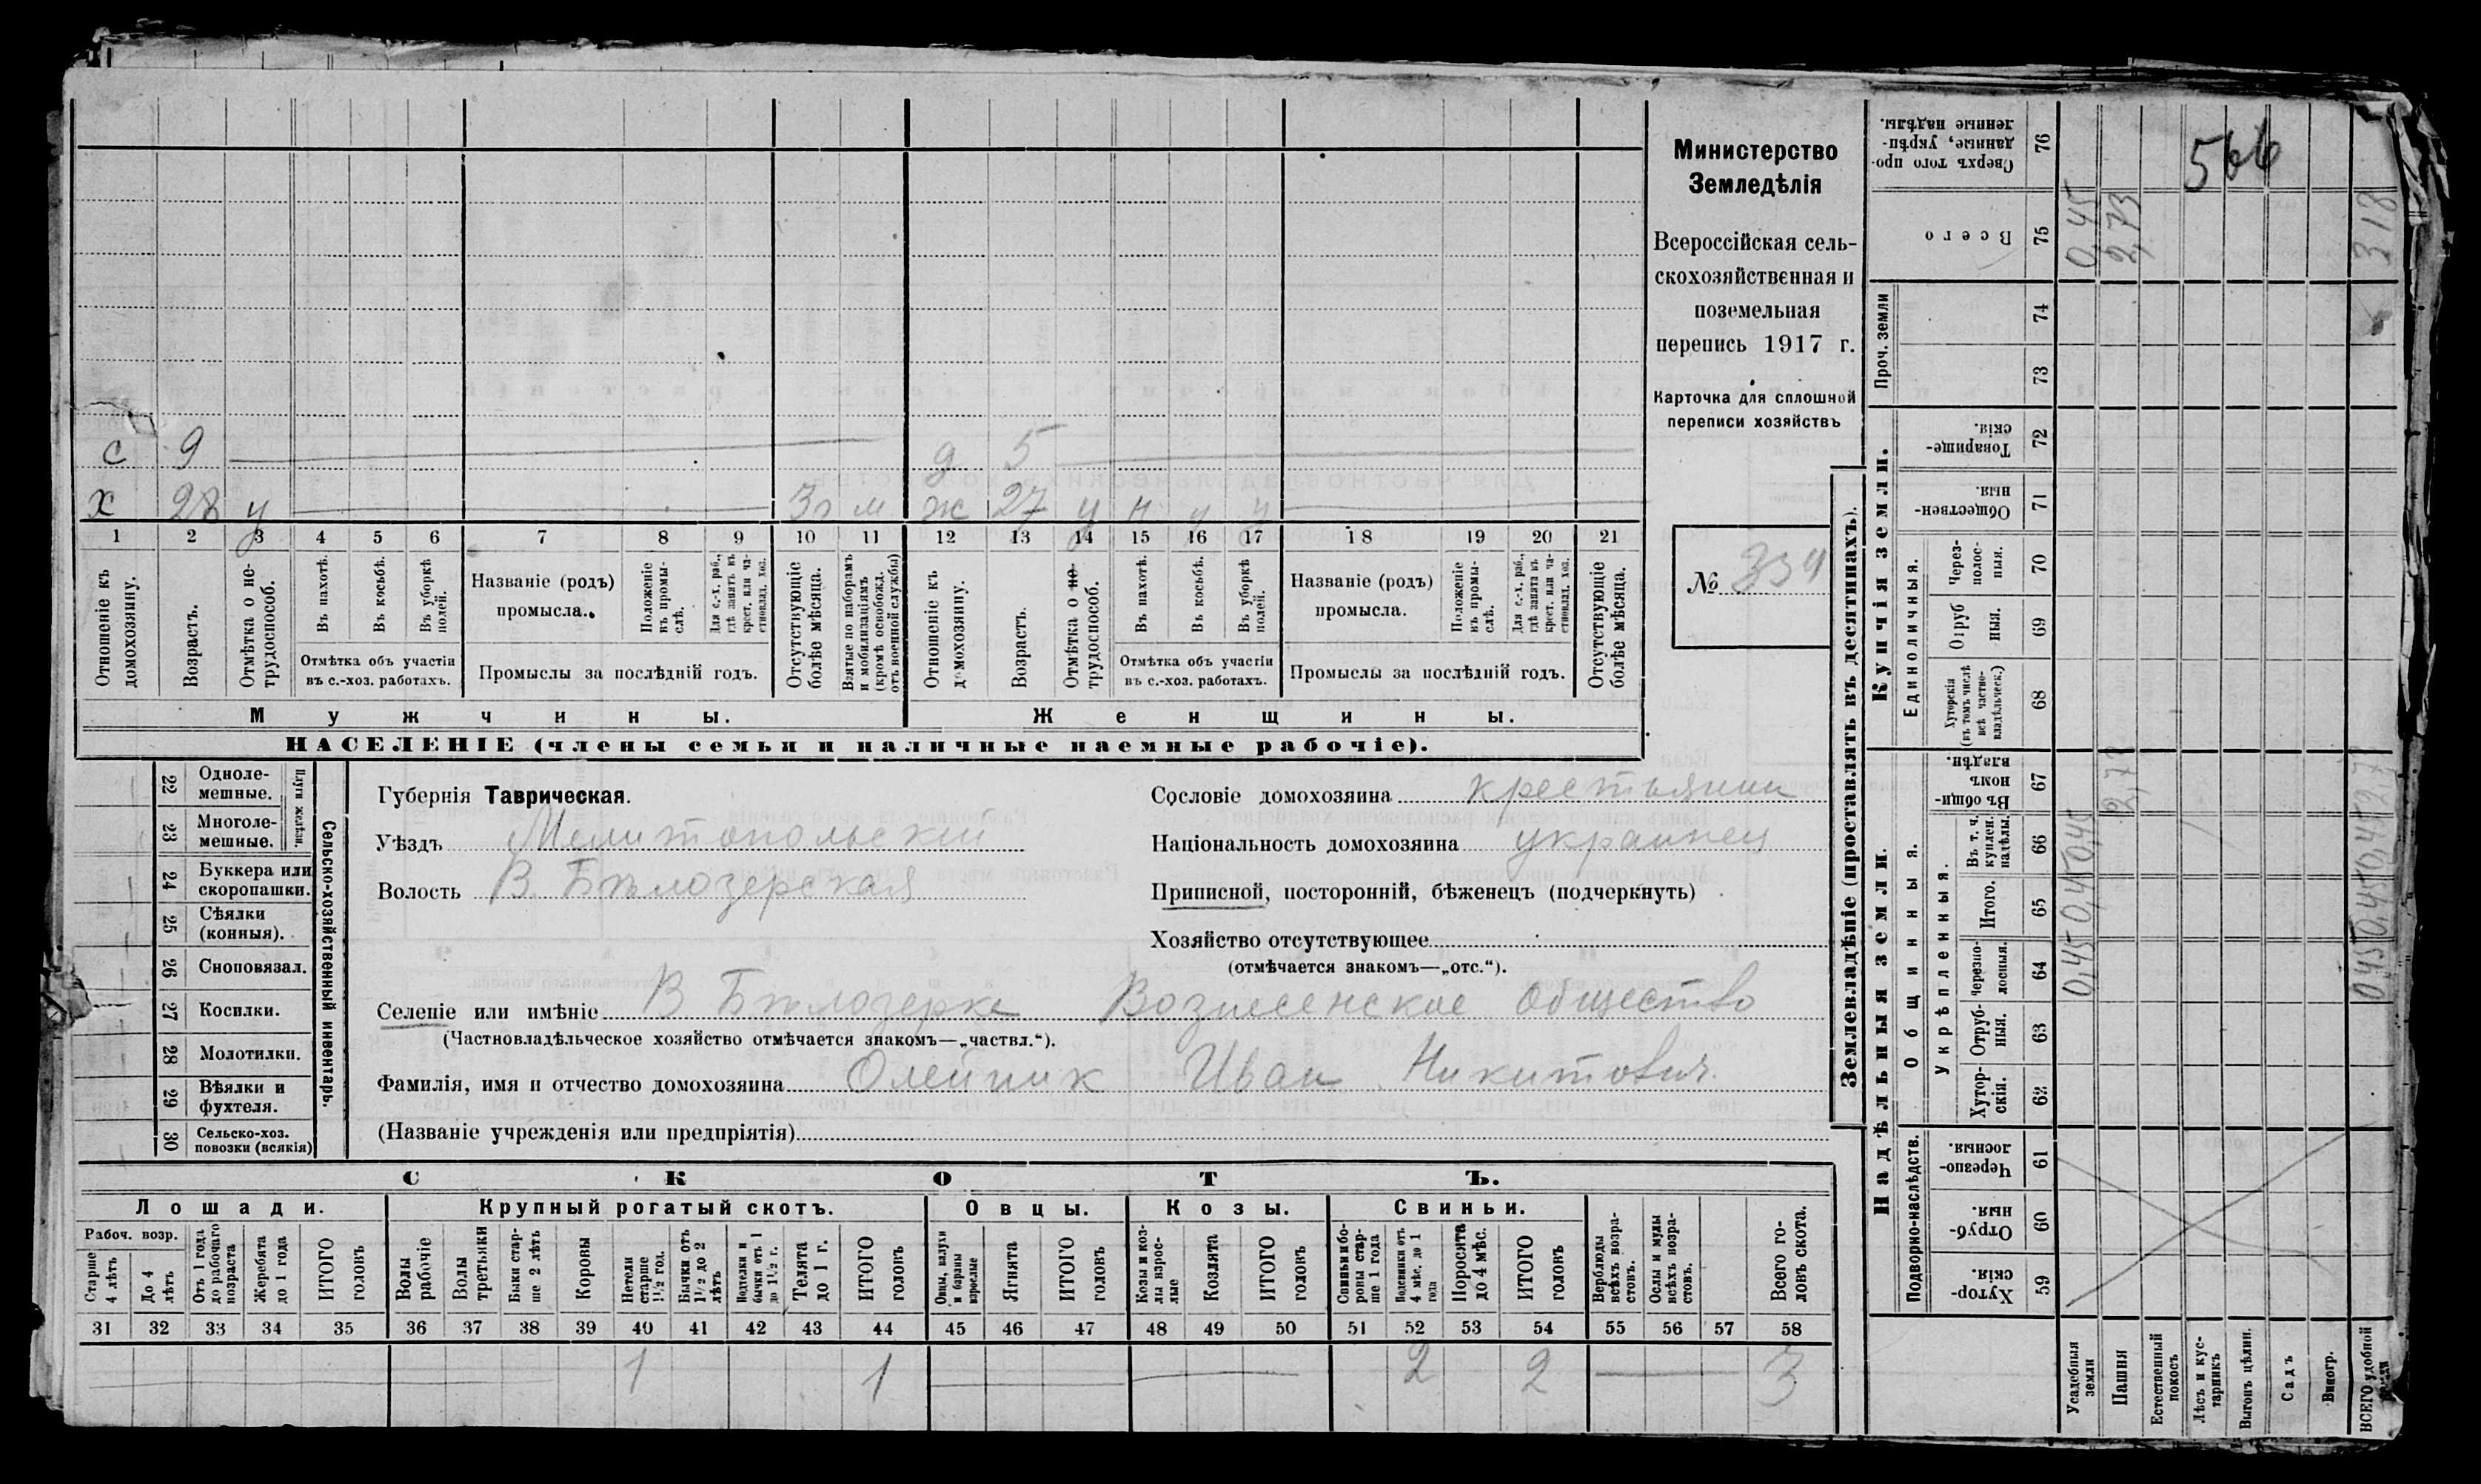 Министерство
Земледѣлія
Всероссійская сель-
скохозяйственная и
поземельная
перепись 1917 г.
Карточка для сплошной
переписи хозяйствъ
№ 334
с 9 д 5
х 28 у Зг м ж 27 у н у у
1 2 3 4 5 6 7 8 9 10 11 12 13 14 15 16 17 18 19 20 21
Отношеніе къ домохозяину.
Возрастъ.
Отмѣтка о не-трудоспособ.
Въ пахотѣ.
Въ косьбѣ.
Въ уборкѣ полей.
Отмѣтка объ участіи
въ с.-хоз. работахъ.
Названіе (родъ)
промысла.
Положеніе въ промы-слѣ.
Для с.-х. раб., гдѣ занятъ въ крест. или ча-стновлад. хоз.
Промыслы за послѣдній годъ.
Отсутствующіе болѣе мѣсяца.
Взятые по наборамъ и мобилизаціямъ (кромѣ освобожд. отъ военной службы)
Отношеніе къ домохозяину.
Возрастъ.
Отмѣтка о не-трудоспособ.
Въ пахотѣ.
Въ косьбѣ.
Въ уборкѣ полей.
Отмѣтка объ участіи
въ с.-хоз. работахъ.
Названіе (родъ)
промысла.
Положеніе въ промы-слѣ.
Для с.-х. раб., гдѣ занята въ крест. или ча-стновлад. хоз.
Промыслы за послѣдній годъ.
Отсутствующіе болѣе мѣсяца.
Мужчины. Женщины.
НАСЕЛЕНІЕ (члены семьи и наличные наемные рабочіе).
Сельско-хозяйственный инвентарь.
Плуги желѣзн.
22 Одноле-мешные.
23 Многоле-мешные.
24 Буккера или скоропашки.
25 Сѣялки (конныя).
26 Сноповязал.
27 Косилки.
28 Молотилки.
29 Вѣялки и фухтеля.
30 Сельско-хоз. повозки (всякія)
Губернія Таврическая.
Уѣздъ Мелитопольскій
Волость В. Бѣлозерская
Сословіе домохозяина крестьянин
Національность домохозяина украинец
Приписной, посторонній, бѣженецъ (подчеркнуть)
Хозяйство отсутствующее
(отмѣчается знакомъ—„отс.“).
Селеніе или имѣніе В Бѣлозерке Вознесенское общество
(Частновладѣльческое хозяйство отмѣчается знакомъ—„частвл.“).
Фамилія, имя и отчество домохозяина Олейник Иван Никитович
(Названіе учрежденія или предпріятія)
СКОТЪ.
Лошади. Крупный рогатый скотъ. Овцы. Козы. Свиньи.
Рабоч. возр.
Старше 4 лѣтъ
До 4 лѣтъ
Отъ 1 года до рабочаго возраста
Жеребята до 1 года
ИТОГО головъ
Волы рабочіе
Волы третьяки
Быки стар-ше 2 лѣтъ
Коровы
Нетели старше 1½ год.
Бычки отъ 1½ до 2 лѣтъ
Подтелки и бычки отъ 1 до 1½ г.
Телята до 1 г.
ИТОГО головъ
Овцы, валухи и бараны взрослые
Ягнята
ИТОГО головъ
Козы и коз-лы взрос-лые
Козлята
ИТОГО головъ
Свиньи и бо-ровы стар-ше 1 года
Подсвинки отъ 4 мѣс. до 1 года
Поросята до 4 мѣс.
ИТОГО головъ
Верблюды всѣхъ возра-стовъ.
Ослы и мулы всѣхъ возра-стовъ.
Всего го-ловъ скота.
31 32 33 34 35 36 37 38 39 40 41 42 43 44 45 46 47 48 49 50 51 52 53 54 55 56 57 58
1 1 2 2 3
Землевладѣніе (проставлять въ десятинахъ).
Сверхъ того про-данные, укрѣп-ленные надѣлы. 76
566
Всего 75 0,45 2,73 3 18
Проч. земли 74
73
Купчія земли.
Товарище-скія. 72
Обществен-ныя. 71
Единоличныя.
Через-полос-ныя. 70
Отруб ныя. 69
Хуторскія (въ томъ числѣ всѣ частно-владѣльческ.) 68
Надѣльныя земли.
Общинныя.
Въ общи-номъ владѣн. 67 2,73 2,73
Укрѣпленныя.
Въ т. ч. куплен. надѣлы. 66 0,45 0,45
Итого. 65 0,45 0,45
Черезпо-лосныя. 64 0,45 0,45
Отруб-ныя. 63
Хутор-скія. 62
Подворно-наслѣдств.
Черезпо-лосныя. 61
Отруб-ныя. 60
Хутор-скія. 59
Усадебныя земли
Пашня
Естественный покосъ
Лѣсъ и кус-тарникъ
Выгонъ цѣлин.
Садъ
Виногр.
ВСЕГО удобной земли